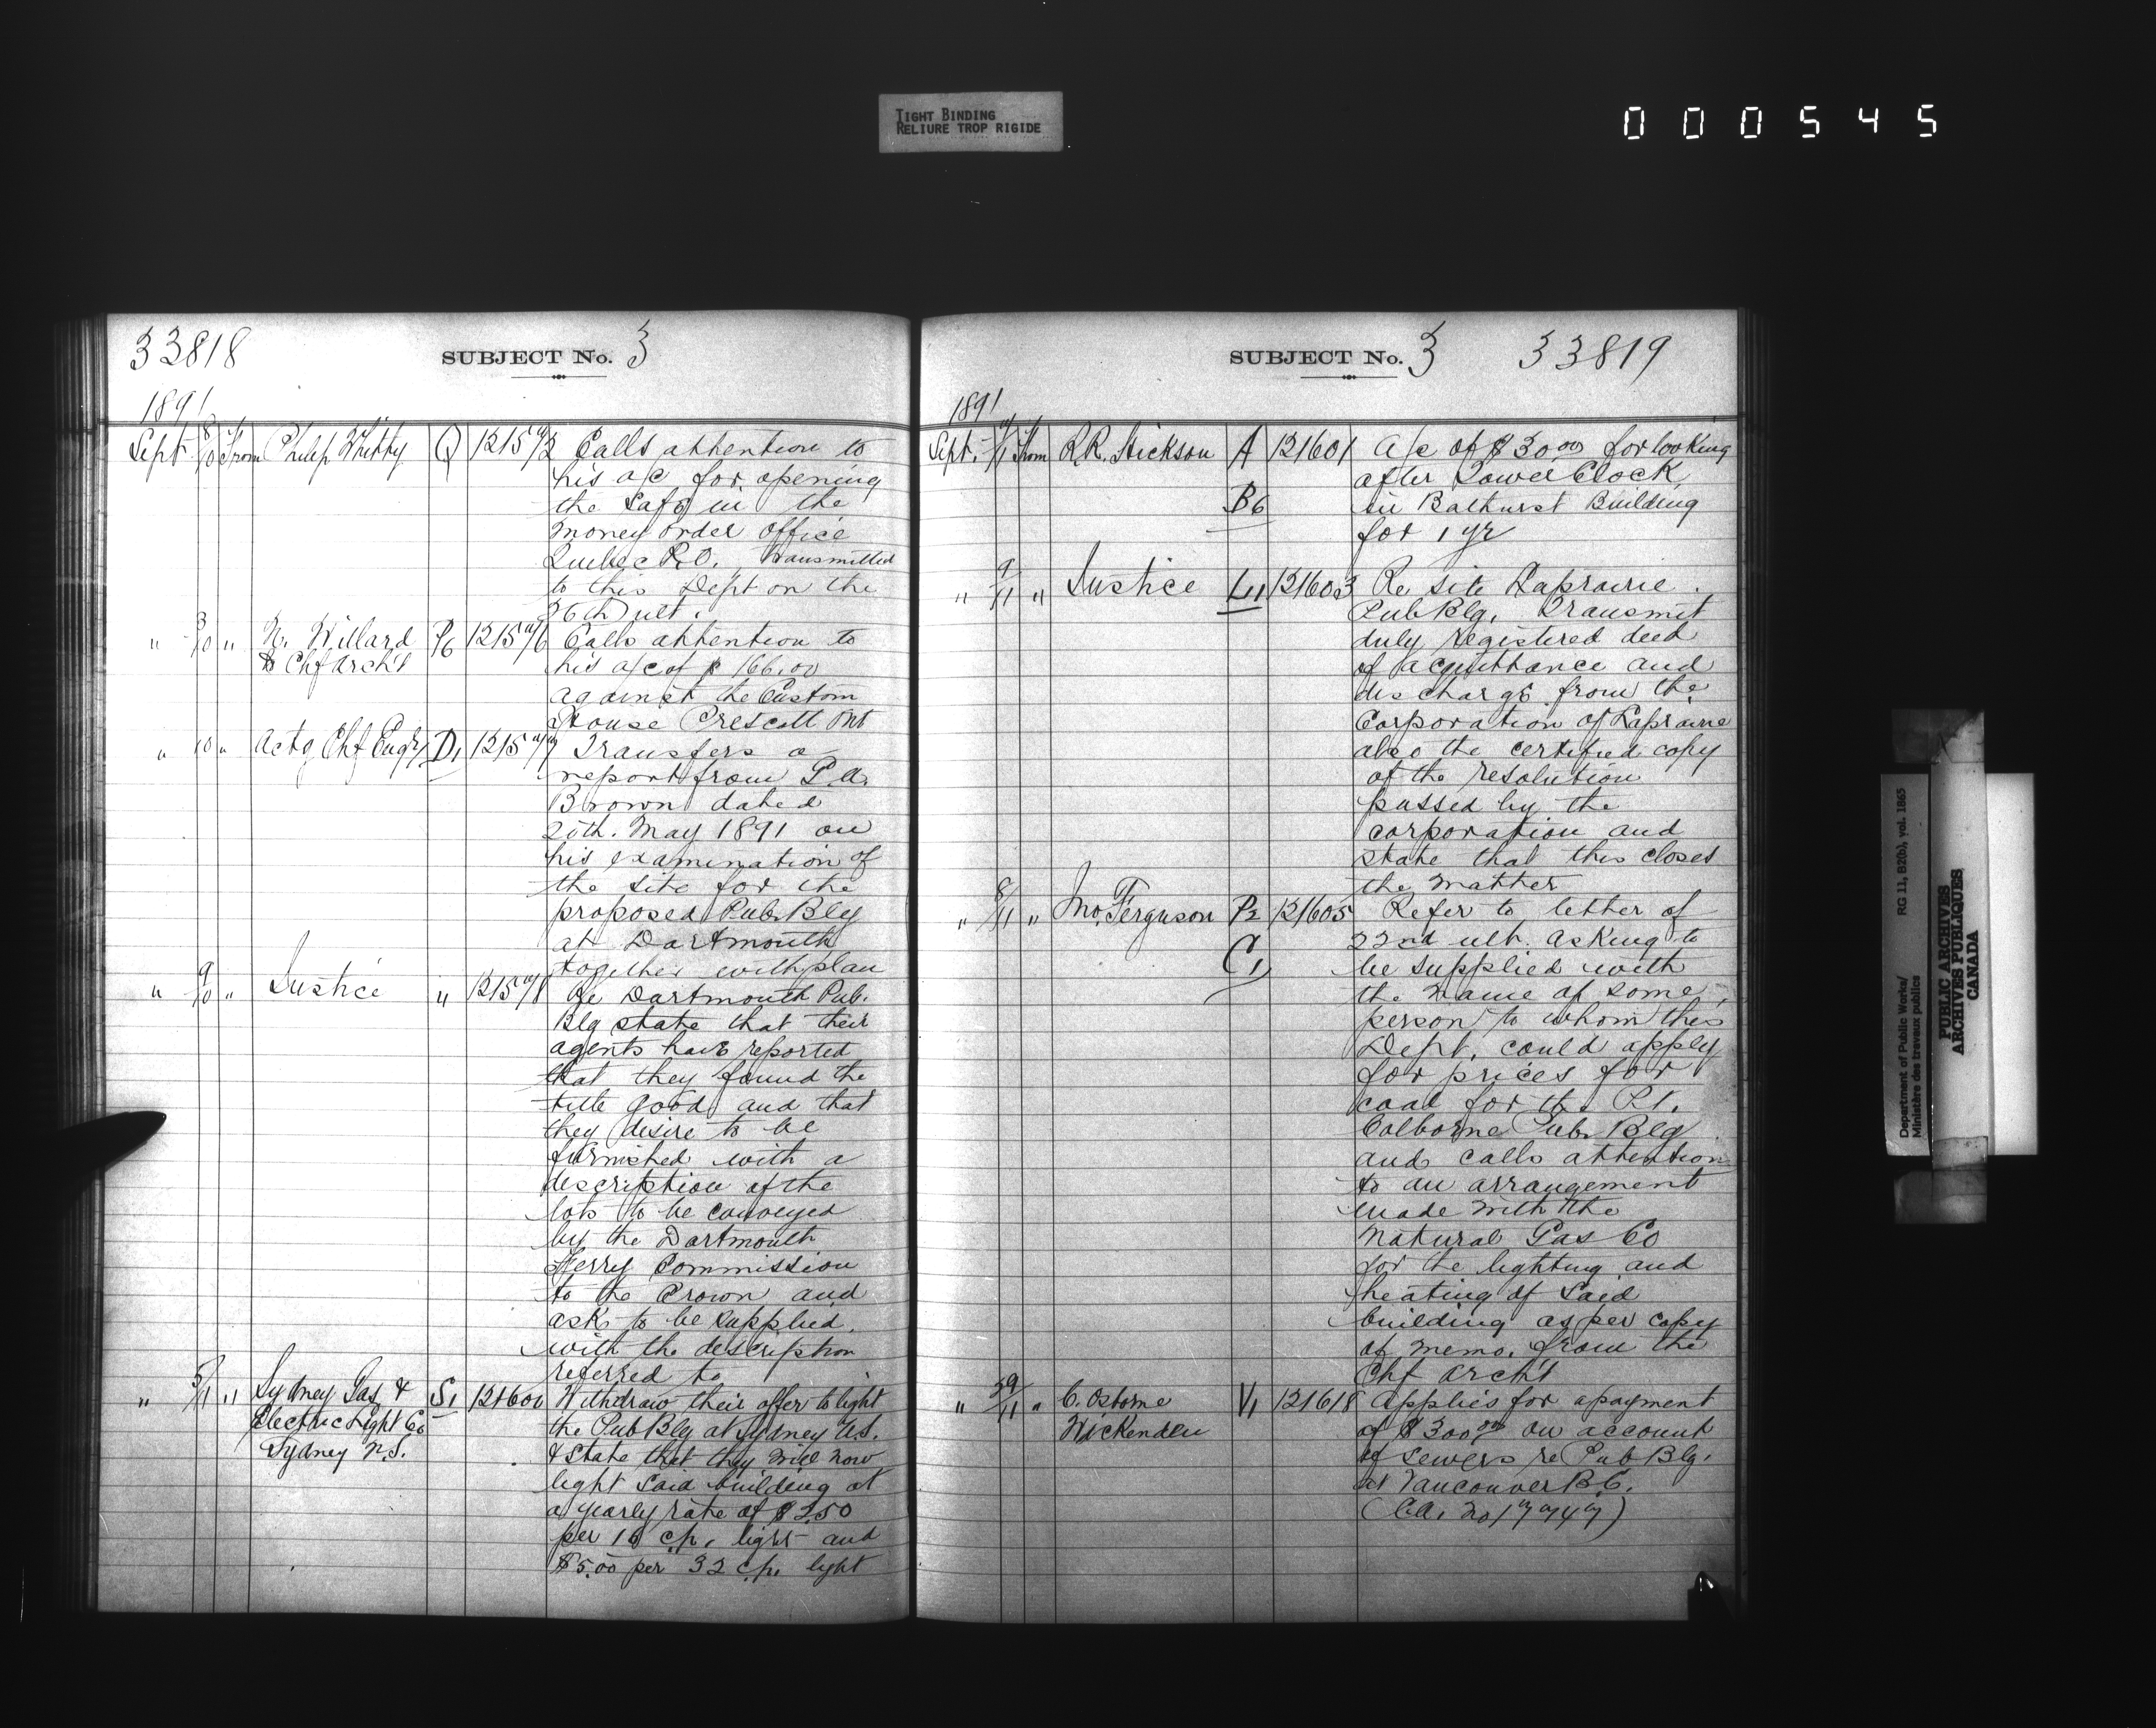 TIGHT BINDING
RELIURE TROP RIGIDE
000545
33818 SUBJECT No. 3
1891
Sept 8/10 From Philip Whitty Q 121572 Calls attention to
his a/c for opening
the Safe in the
Money order office
Quebec P.O. transmitted
to this Dept on the
26th ult.
" 3/10 " N. Willard P6 121576 Calls attention to
to Chf Arch't his a/c of $166.00
against the Custom
House Prescott Ont
" 10 " Actg Chf Engr D1 121577 Transfers a
report from P.A.
Brown dated
20th. May 1891 on
his examination of
the site for the
proposed Pub. Blg
at Dartmouth
together with plan
" 9/10 " Justice " 121578 Re Dartmouth Pub.
Blg state that their
agents have reported
that they found the
title good and that
they desire to be
furnished with a
description of the
lots to be conveyed
by the Dartmouth
Ferry Commission
to the Crown and
ask to be supplied
with the description
referred to
" 5/11 " Sydney Gas & S1 121600 Withdraw their offer to light
Electric Light Co the Pub Blg at Sydney N.S.
Sydney N.S. & state that they will now
light said building at
a yearly rate of $2.50
per 16 c.p. light and
$5.00 per 32 c.p. light
SUBJECT No. 3 33819
1891
Sept. 9/11 From R.R. Hickson A 121601 A/c of $30.00 for looking
after Tower Clock
B6 in Bathurst Building
for 1 yr
" 9/11 " Justice L11 121603 Re site Laprairie
Pub Blg. Transmit
duly registered deed
of acquittance and
discharge from the
Corporation of Laprairie
also the certified copy
of the resolution
passed by the
corporation and
state that this closes
the matter
" 8/11 " Jno. Ferguson P2 121605 Refer to letter of
C1 22nd ult. asking to
be supplied with
the name of some
person to whom this
Dept. could apply
for prices for
coal for the Pt.
Colborne Pub. Blg
and calls attention
to an arrangement
made with the
Natural Gas Co
for the lighting and
heating of said
building as per copy
of memo. from the
Chf Arch't
" 29/11 " C. Osborne V1 121618 Applies for a payment
Wickenden of $300.00 on account
of sewers re Pub Blg.
at Vancouver B.C.
(C.A. No 177747)
Department of Public Works/ RG 11, B2(b), vol. 1865
Ministère des travaux publics
PUBLIC ARCHIVES
ARCHIVES PUBLIQUES
CANADA